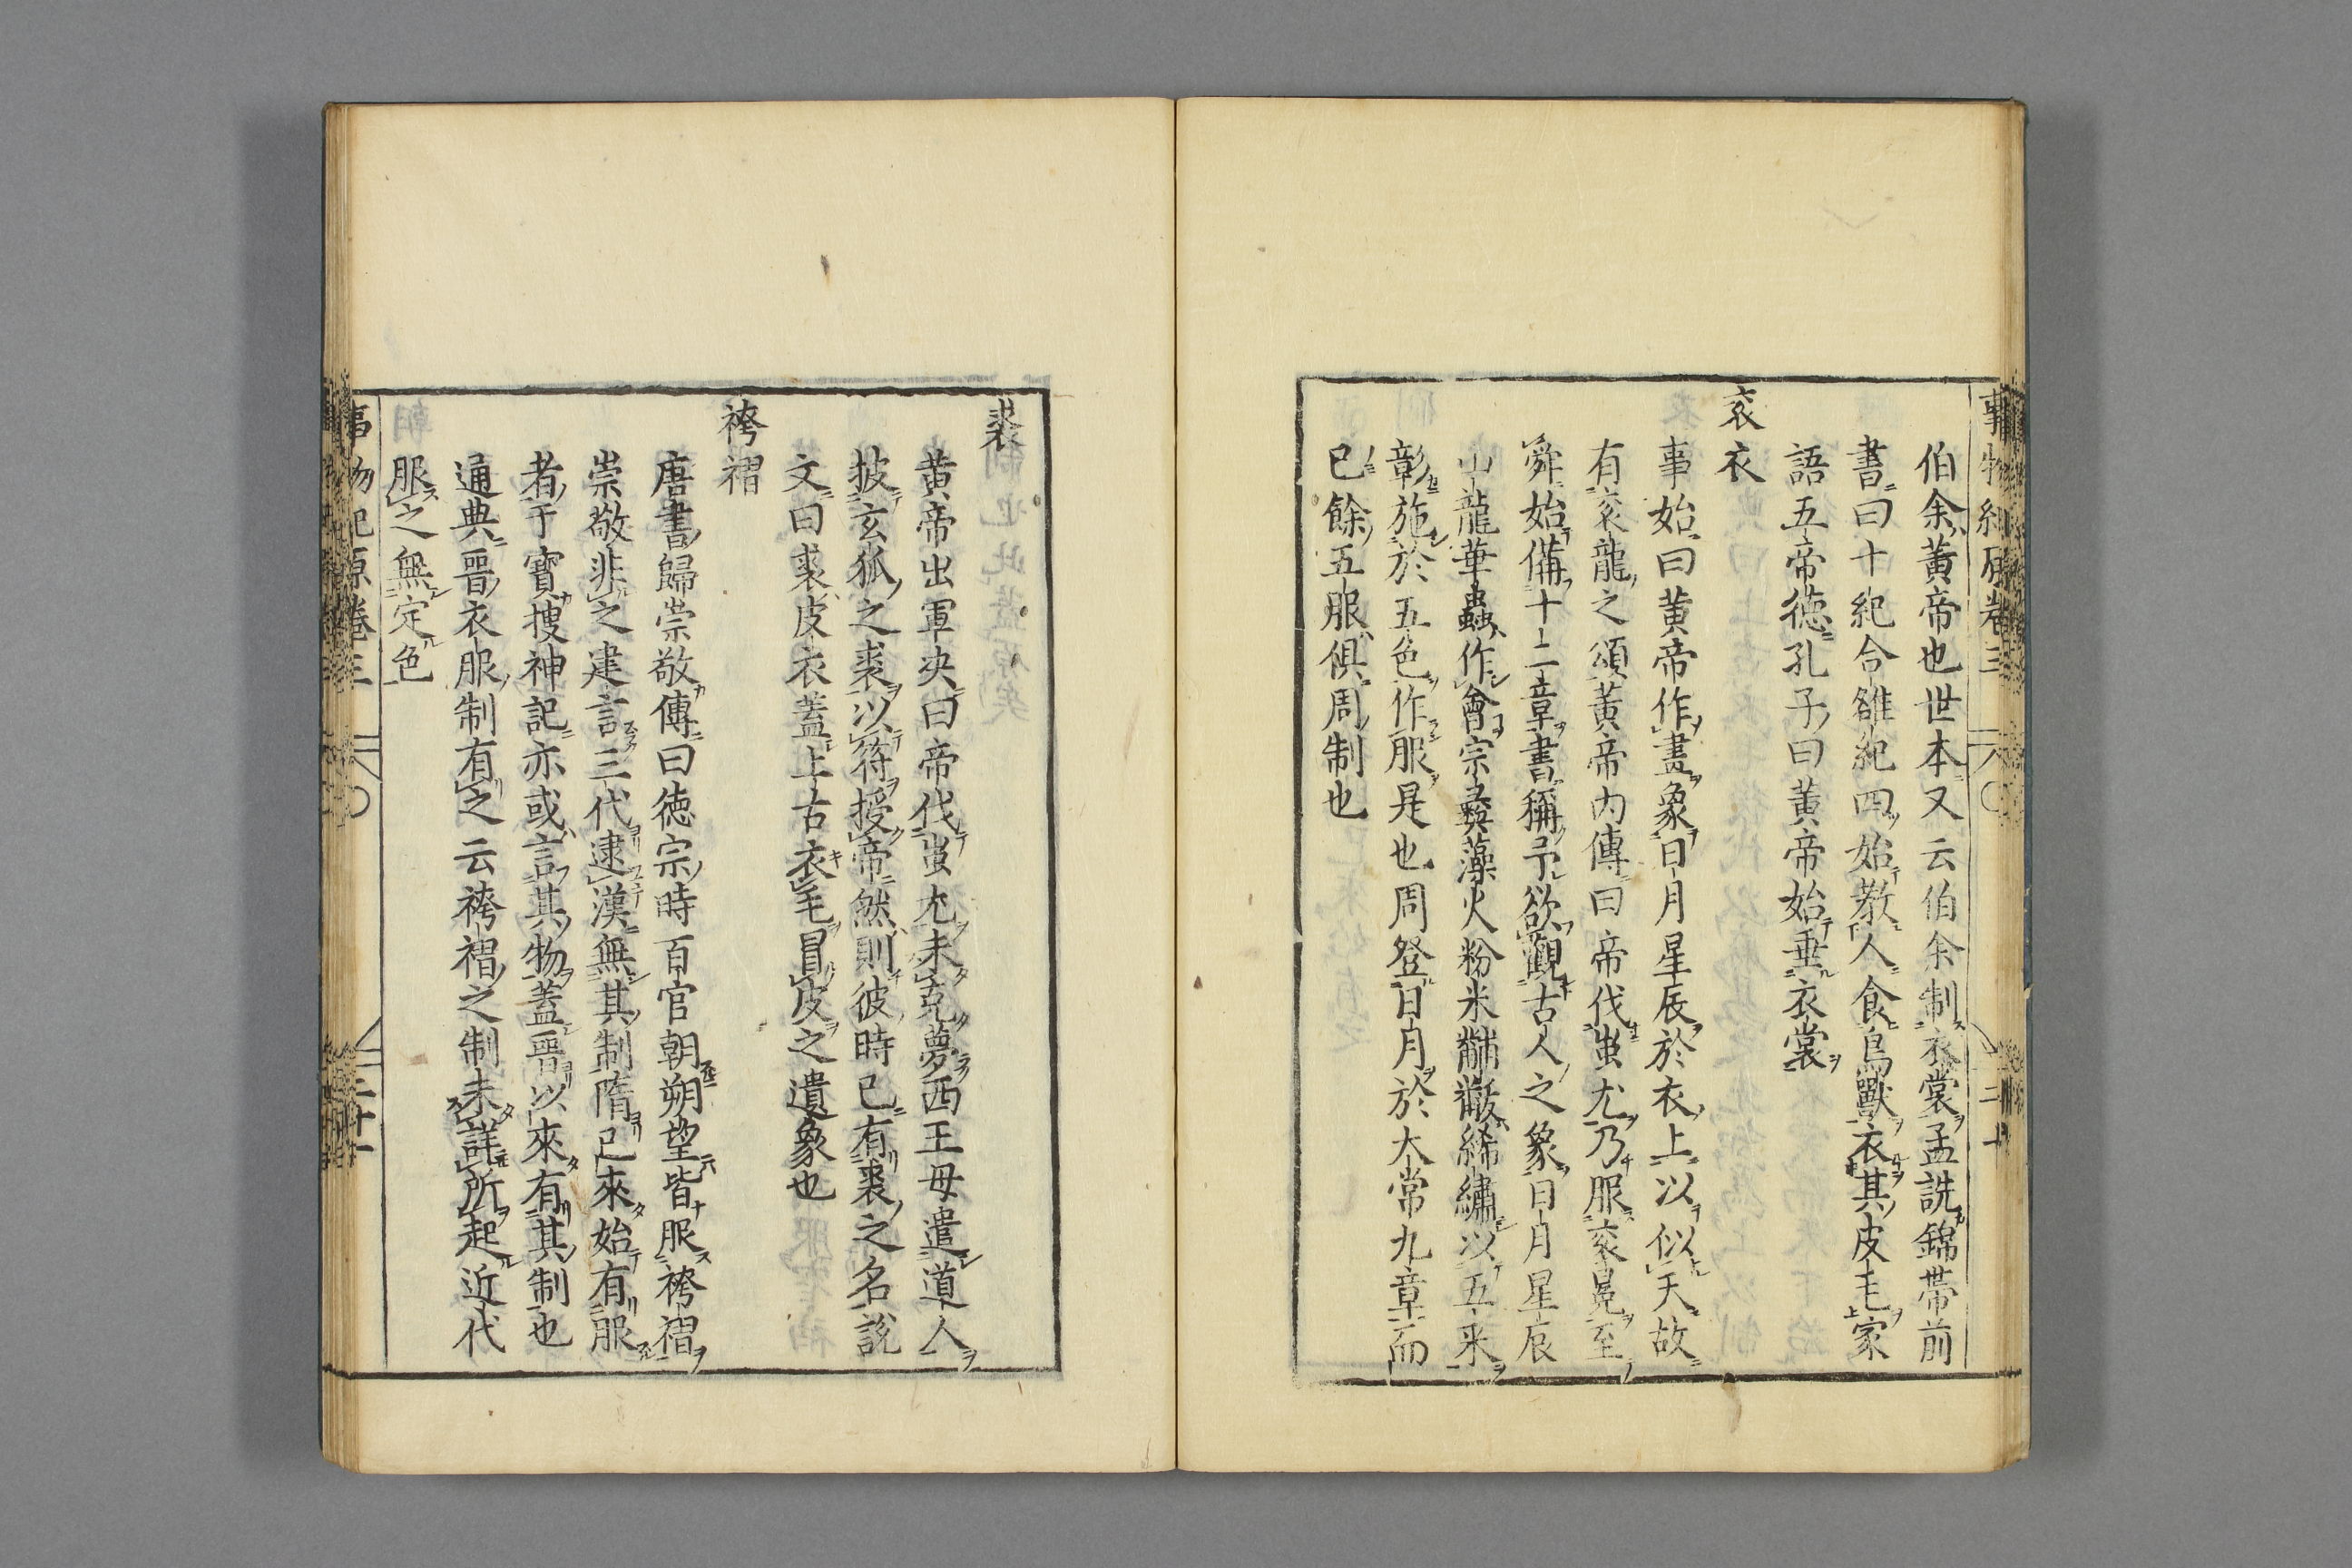 事物紀原卷三
二十
伯余黃帝也世本又云伯余制衣裳孟詵錦帶前
書曰十紀合雒紀四始教人食鳥獸衣其皮毛家
語五帝德孔子曰黃帝始垂衣裳
袞衣
事始曰黃帝作畫象日月星辰於衣上以似天故
有袞龍之頌黃帝內傳曰帝伐蚩尤乃服袞冕至
舜始備十二章書稱予欲觀古人之象日月星辰
山龍華蟲作會宗彝藻火粉米黼黻絺繡以五采
彰施於五色作服是也周登日月於太常九章而
已餘五服俱周制也
裘
黃帝出軍決曰帝伐蚩尤未克夢西王母遣道人
披玄狐之裘以符授帝然則彼時已有裘之名說
文曰裘皮衣蓋上古衣毛冒皮之遺象也
袴褶
唐書歸崇敬傳曰德宗時百官朝朔望皆服袴褶
崇敬非之建言三代逮漢無其制隋已來始有服
者于寶搜神記亦或言其物蓋晉以來有其制也
通典晉衣服制有之云袴褶之制未詳所起近代
服之無定色
事物紀原卷三
二十一